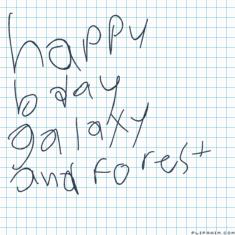 happy
b day
galaxy
and forest
FLIPANIM.COM